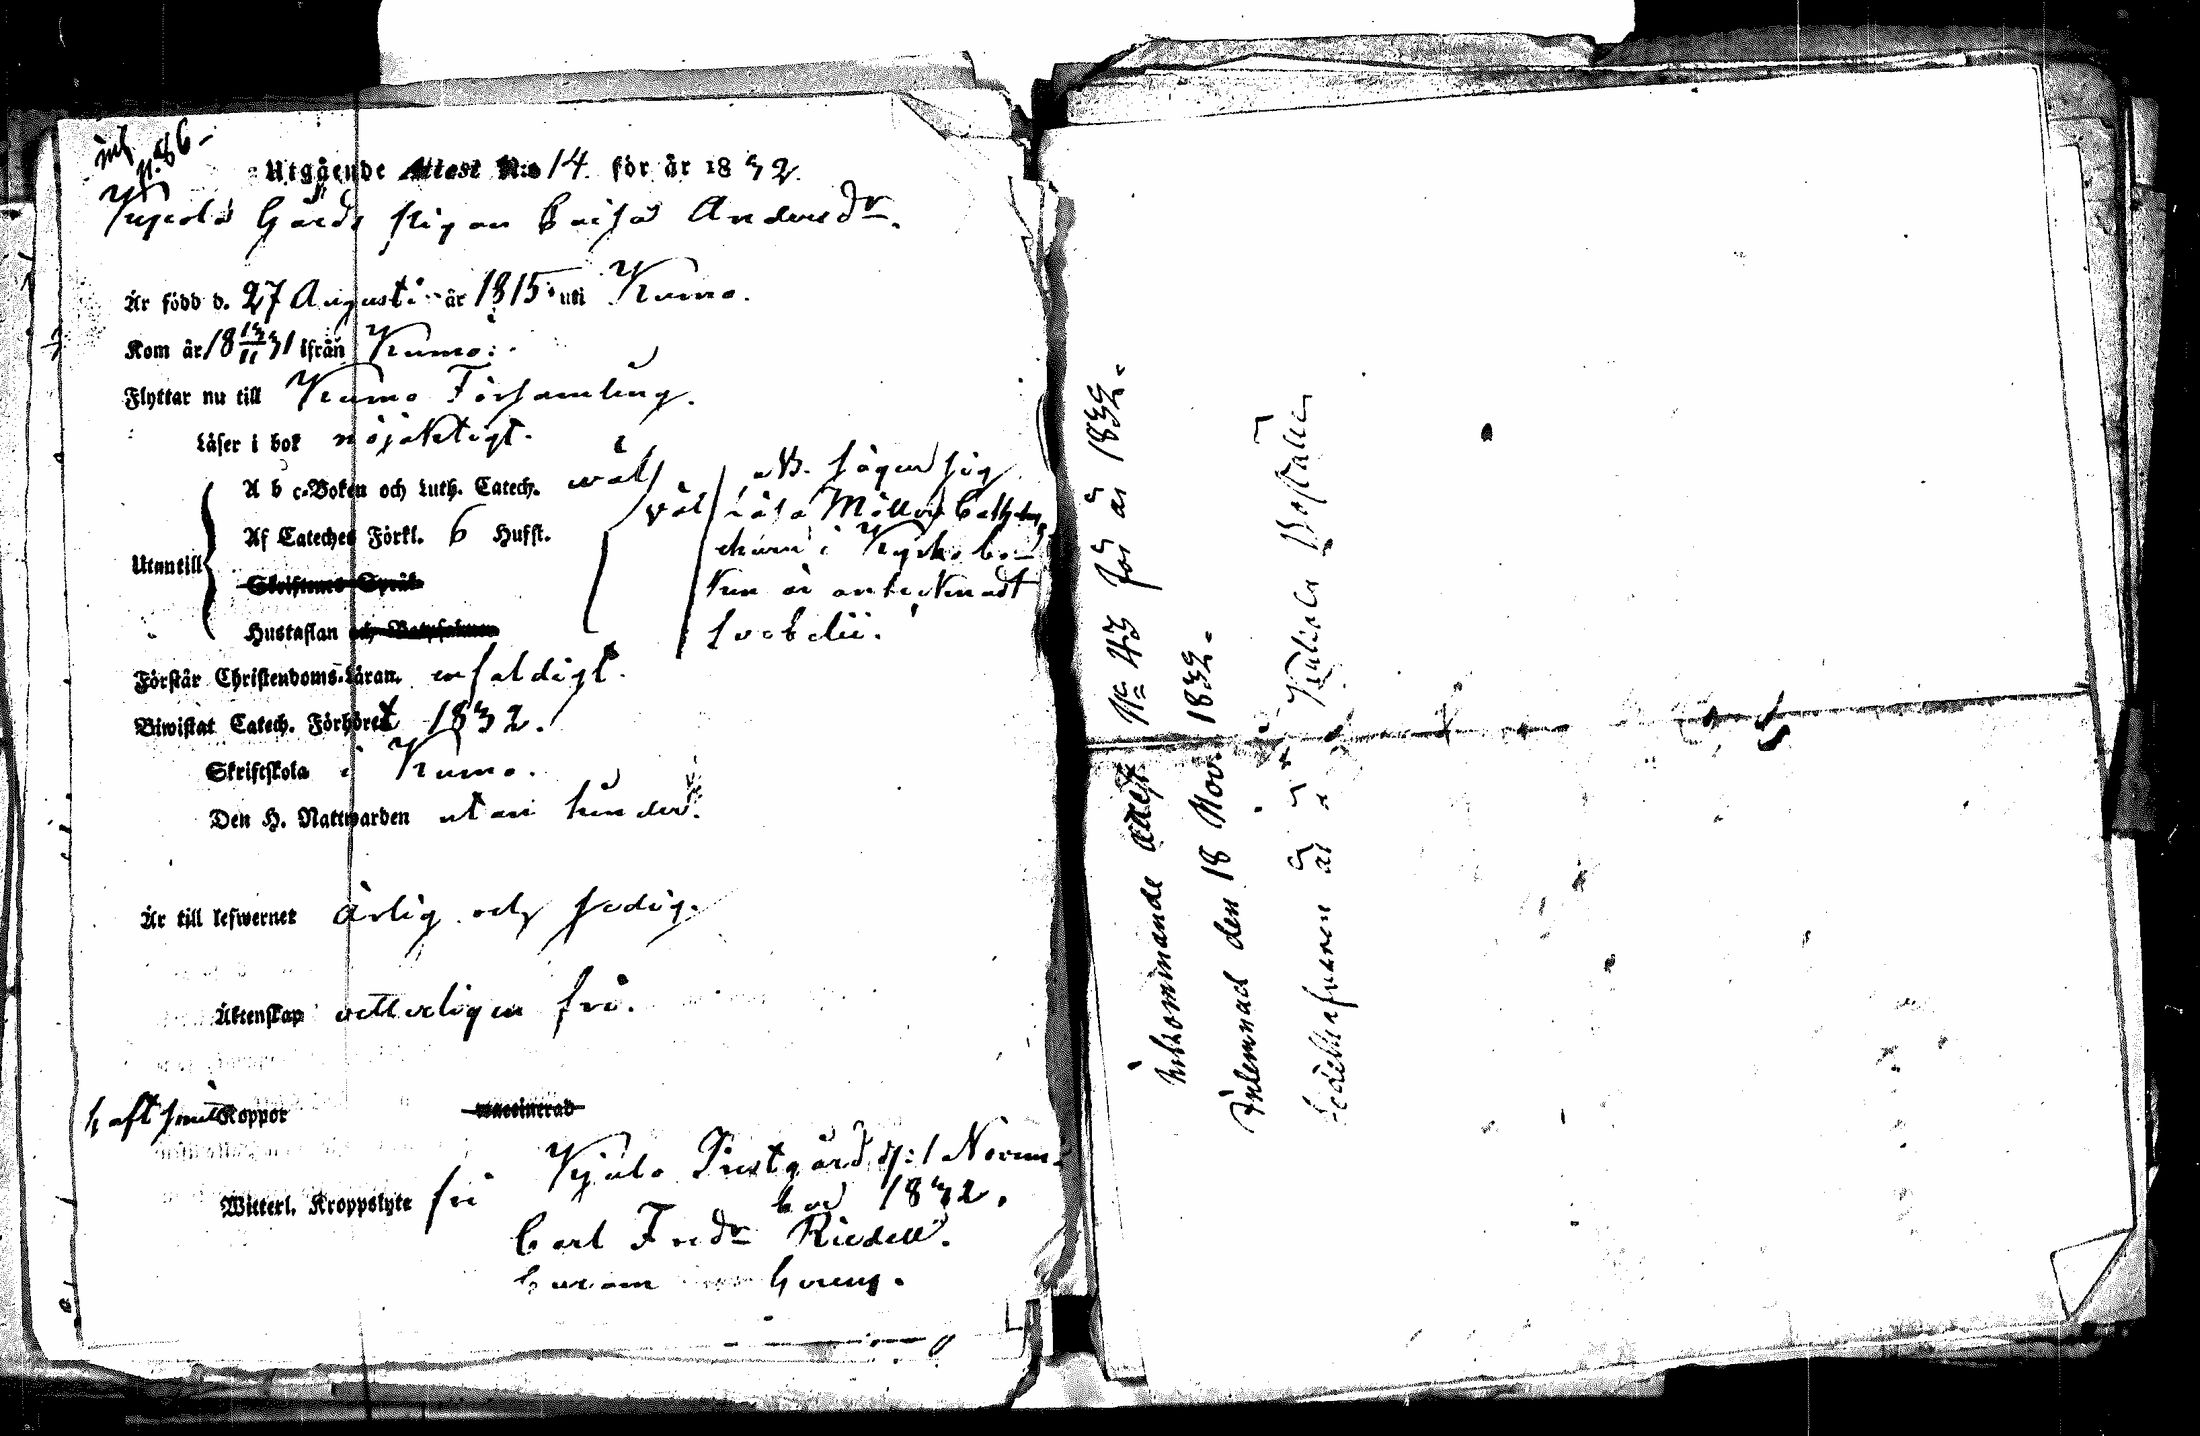 Utgående Attest N:o 14. för år 1832.
Gårds pigan Caisa Andersdr.
Är född d. 27 Augusti år 1815 uti Kumo.
Kom år 18 13/11 31 ifrån Kumo.
Flyttar nu till Kumo Församling.
Läser i bok nöjaktigt.
A b c-Boken och Luth. Catech. wäl
Af Cateches Förkl. 6 Hufst.
wäl
Utantill
Skriftenes Språk
Hustaflan och Botpsalmen
NB. säger sig
Läsa Möllers
i Kyrkobo-
ken är antecknadt
Förstår Christendoms-Läran. enfaldigt.
Biwistat Catech. Förhöret 1832.
Skriftskola i Kumo.
Den H. Nattwarden utan hinder.
Är till lefwernet Ärlig och sedig.
Äktenskap wetterligen fri.
haft Koppor vaccinerad
Witterl. Kroppslyte fri
Kjulo Prestgård d: 1 Novem-
ber 1832.
Carl Fredr Riedell.
Inkommande attest No 43 för år 1832.
Inlemnad den 18 Nov. 1832.